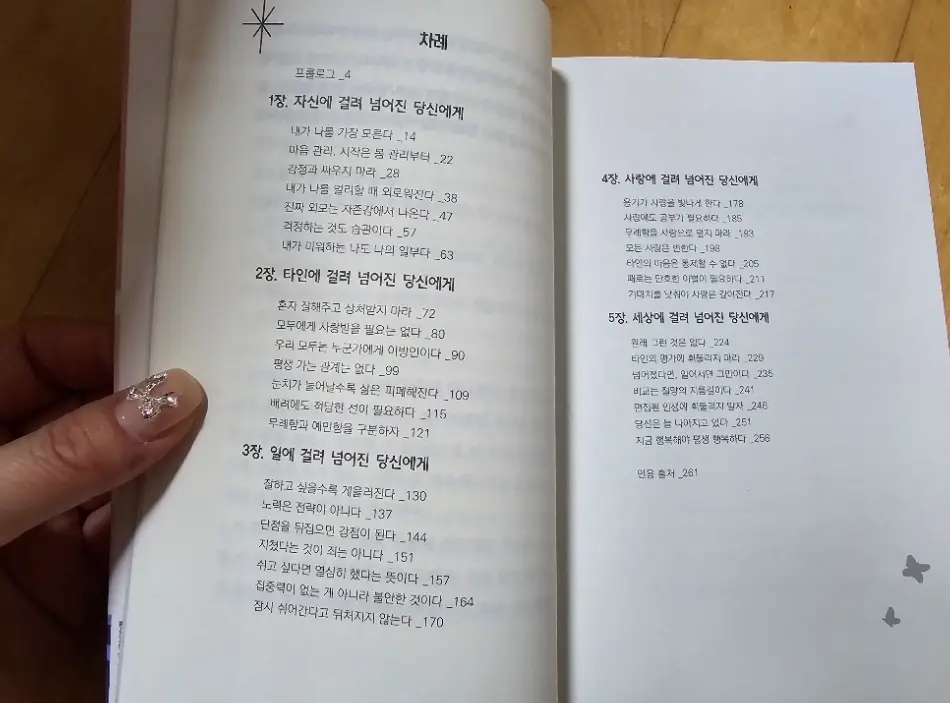 차례
프롤로그 _4
1장. 자신에 걸려 넘어진 당신에게
내가 나를 가장 모른다 _14
마음 관리, 시작은 몸 관리부터 _22
감정과 싸우지 마라 _28
내가 나를 멀리할 때 외로워진다 _38
진짜 외모는 자존감에서 나온다 _47
걱정하는 것도 습관이다 _57
내가 미워하는 나도 나의 일부다 _63
2장. 타인에 걸려 넘어진 당신에게
혼자 잘해주고 상처받지 마라 _72
모두에게 사랑받을 필요는 없다 _80
우리 모두는 누군가에게 이방인이다 _90
평생 가는 관계는 없다 _99
눈치가 늘어날수록 삶은 피폐해진다 _109
배려에도 적당한 선이 필요하다 _115
무례함과 예민함을 구분하자 _121
3장. 일에 걸려 넘어진 당신에게
잘하고 싶을수록 게을러진다 _130
노력은 전략이 아니다 _137
단점을 뒤집으면 강점이 된다 _144
지쳤다는 것이 죄는 아니다 _151
쉬고 싶다면 열심히 했다는 뜻이다 _157
집중력이 없는 게 아니라 불안한 것이다 _164
잠시 쉬어간다고 뒤처지지 않는다 _170
4장. 사랑에 걸려 넘어진 당신에게
용기가 사랑을 빛나게 한다 _178
사랑에도 공부가 필요하다 _185
무례함을 사랑으로 덮지 마라 _193
모든 사랑은 변한다 _198
타인의 마음은 통제할 수 없다 _205
때로는 단호한 이별이 필요하다 _211
기대치를 낮춰야 사랑은 깊어진다 _217
5장. 세상에 걸려 넘어진 당신에게
원래 그런 것은 없다 _224
타인의 평가에 휘둘리지 마라 _229
넘어졌다면, 일어서면 그만이다 _235
비교는 절망의 지름길이다 _241
편집된 인생에 휘둘리지 말자 _246
당신은 늘 나아지고 있다 _251
지금 행복해야 평생 행복하다 _256
인용 출처 _261